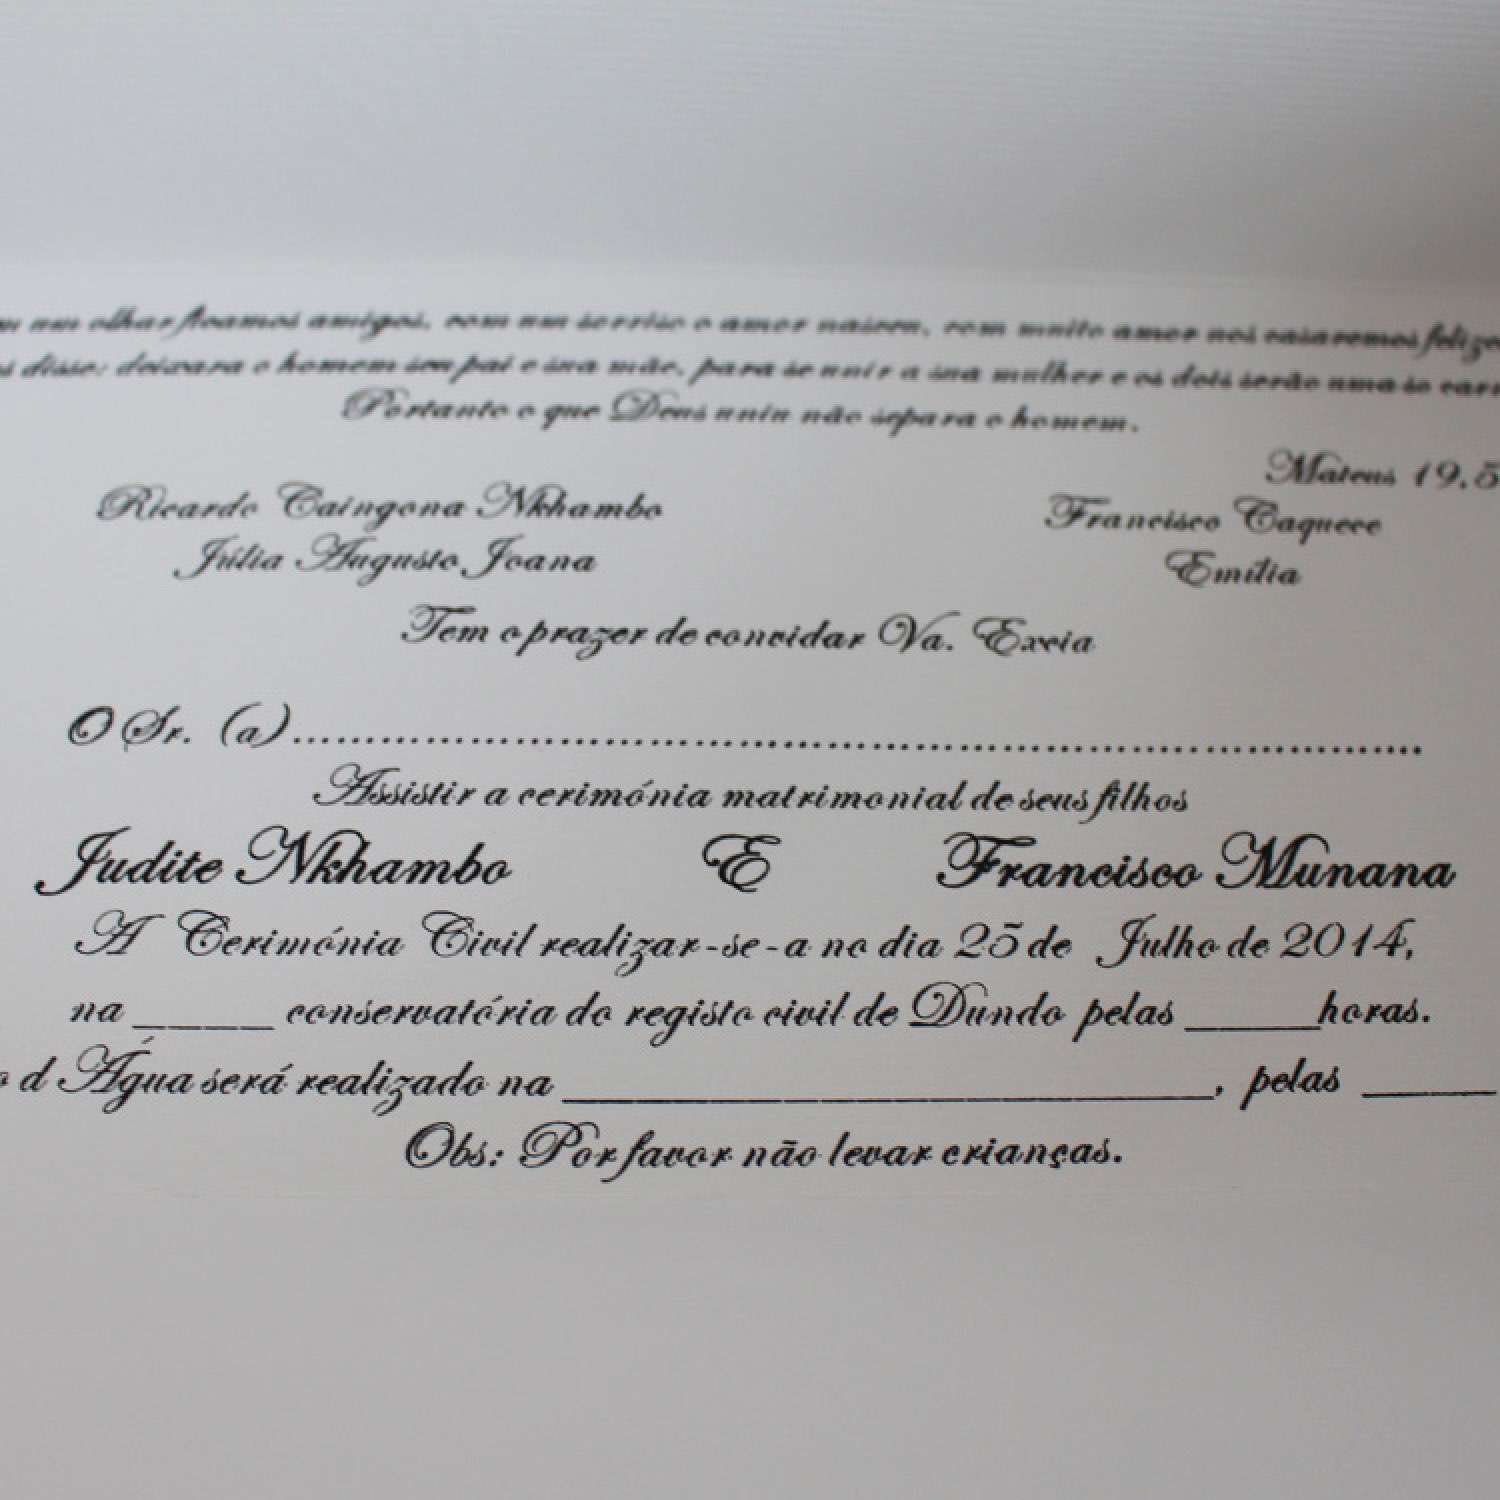 um olhar ficamos amigos, com um sorriso o amor nasceu, com muito amor nos casaremos
disse: deixara o homem seu pai e sua mãe, para se unir a sua mulher e os dois serão uma so
Portanto o que Deus uniu não separa o homem.
Mateus 19,5
Ricardo Caingona Nkhambo Francisco Caquece
Júlia Augusto Joana Emília
Tem o prazer de convidar Va. Excia
O Sr. (a)................................................................................
Assistir a cerimónia matrimonial de seus filhos
Judite Nkhambo E Francisco Munana
A Cerimónia Civil realizar-se-a no dia 25 de Julho de 2014,
na ____ conservatória do registo civil de Dundo pelas ____horas.
d Água será realizado na ____________________, pelas ____
Obs: Por favor não levar crianças.